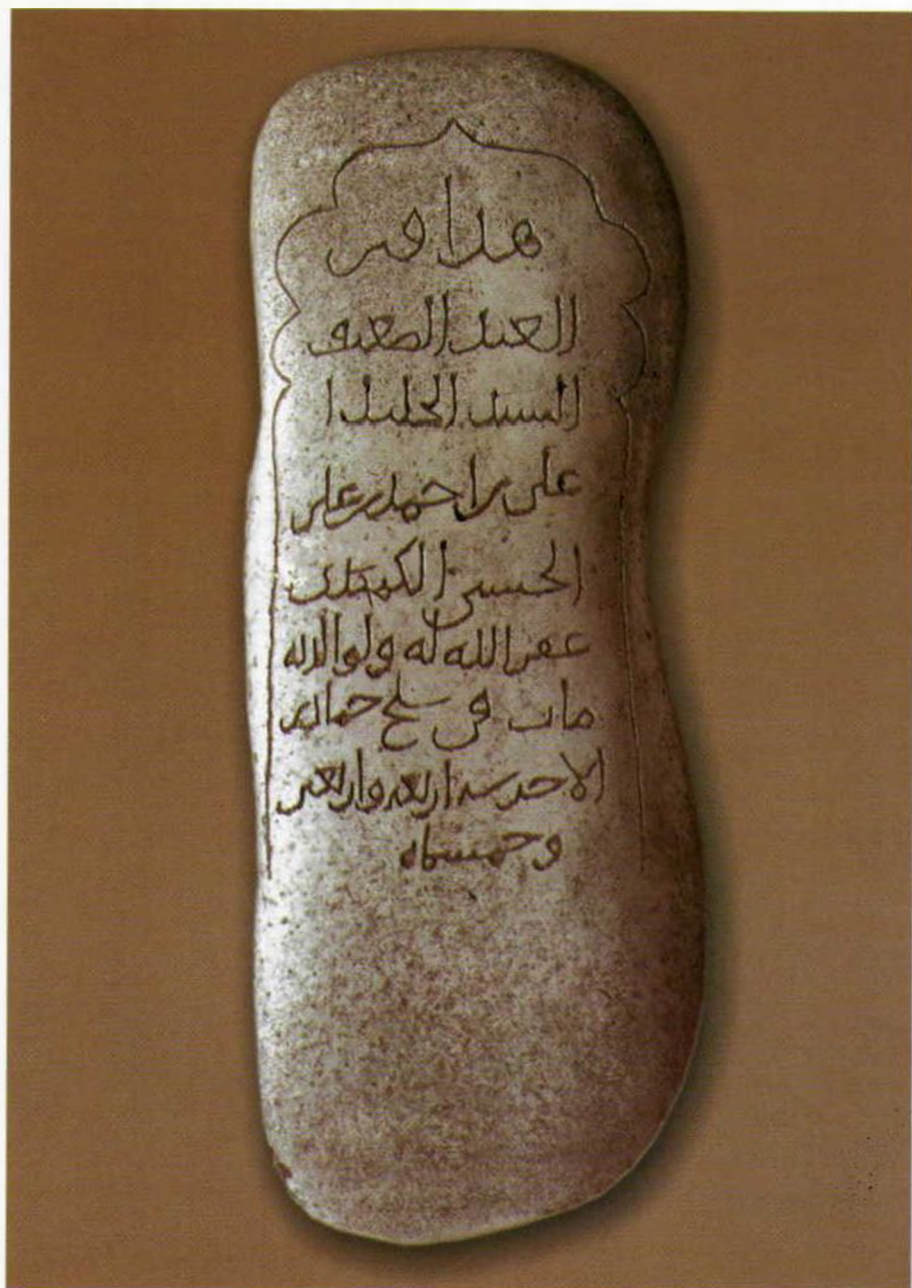 هذا قبر
العبد الضعيف
السيد الجليل ا
على بن احمد بن على
الحسنى
غفر الله له ولوالديه
مات فى سلخ جماد
الاخر سنه اربعه واربعين
وخمسمايه